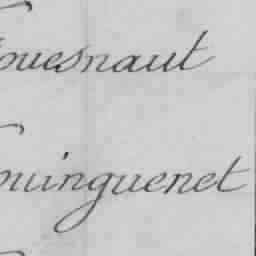 ouesnaut
ouinguenet